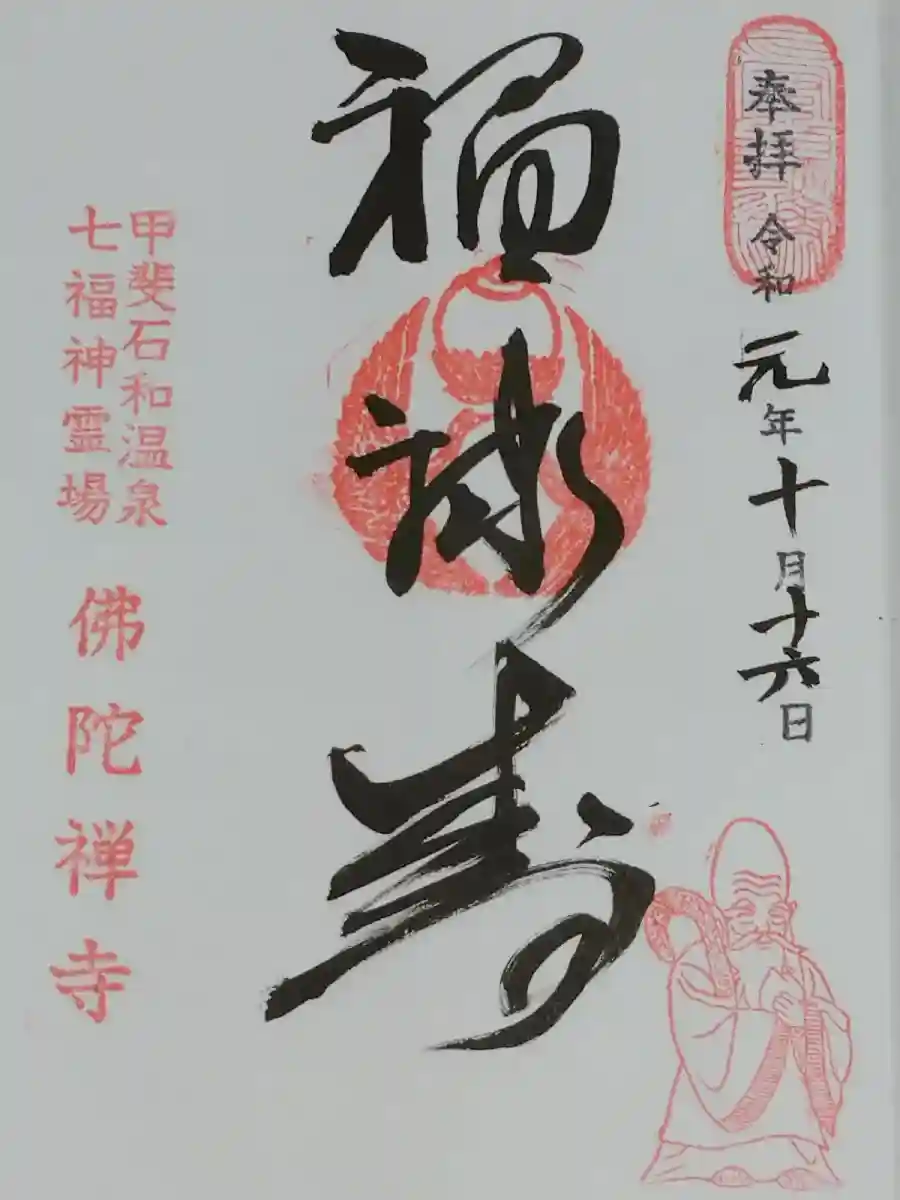 奉拝 令和元年十月十六日
福禄寿
甲斐石和温泉
七福神霊場
佛陀禅寺